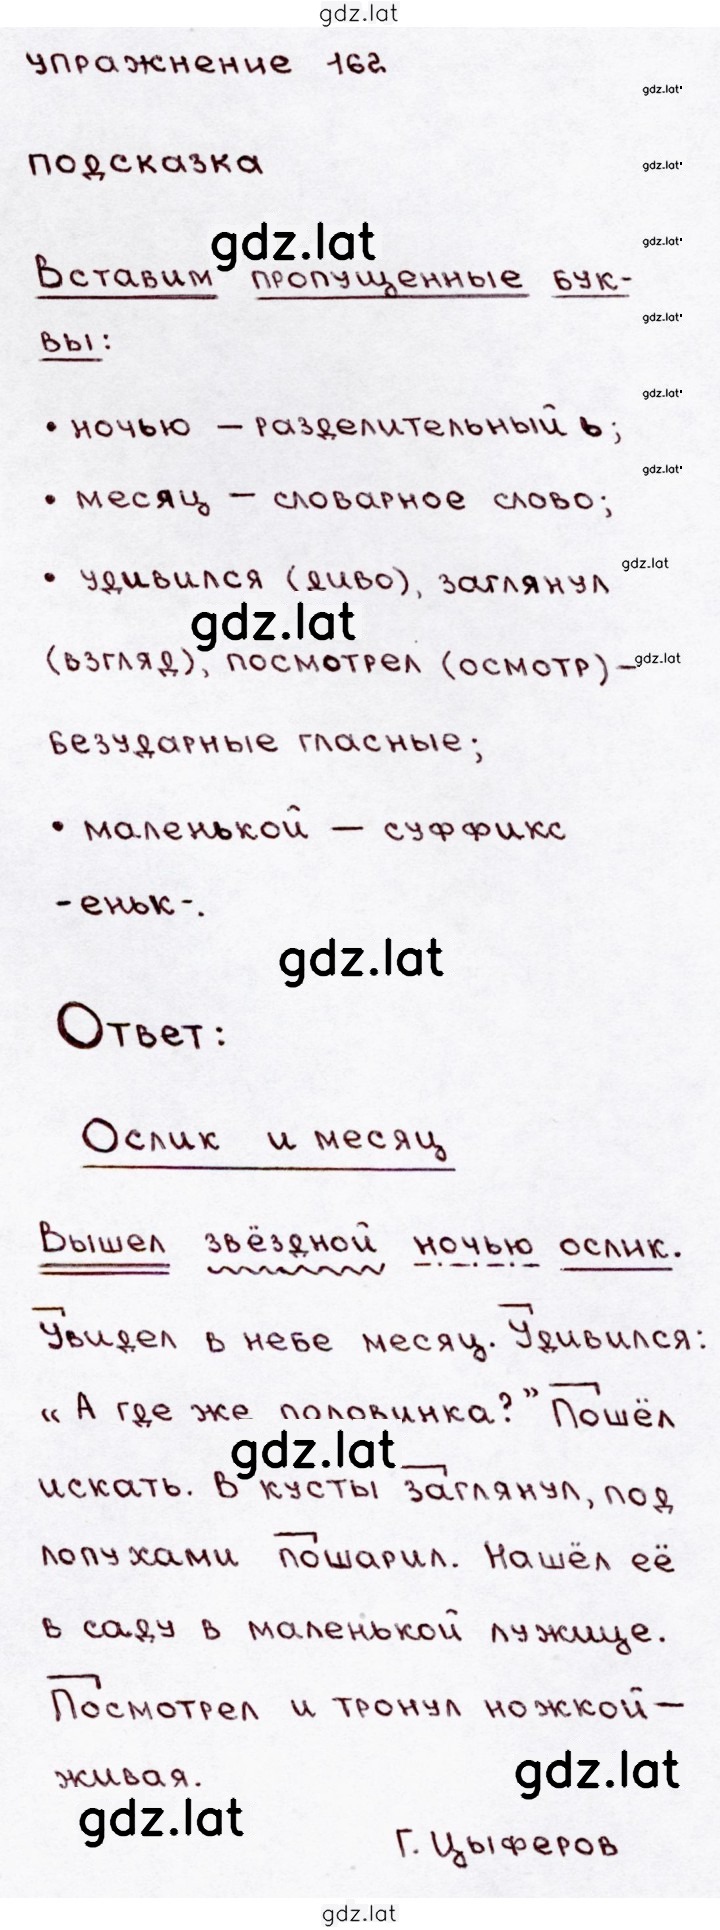 gdz.lat
упражнение 162
gdz.lat
подсказка
gdz.lat
gdz.lat
gdz.lat
Вставим пропущенные бук-
gdz.lat
вы:
gdz.lat
• ночью – разделительный ь;
gdz.lat
• месяц – словарное слово;
gdz.lat
• удивился (диво), заглянул
gdz.lat
(взгляд), посмотрел (осмотр) –
gdz.lat
безударные гласные;
• маленькой – суффикс
-еньк-.
gdz.lat
Ответ:
Ослик и месяц
Вышел звёздной ночью ослик.
Увидел в небе месяц. Удивился:
„А где же половинка?” Пошёл
gdz.lat
искать. В кусты заглянул, под
лопухами пошарил. Нашёл её
в саду в маленькой лужице.
Посмотрел и тронул ножкой –
живая.
gdz.lat
gdz.lat
Г. Цыферов
gdz.lat